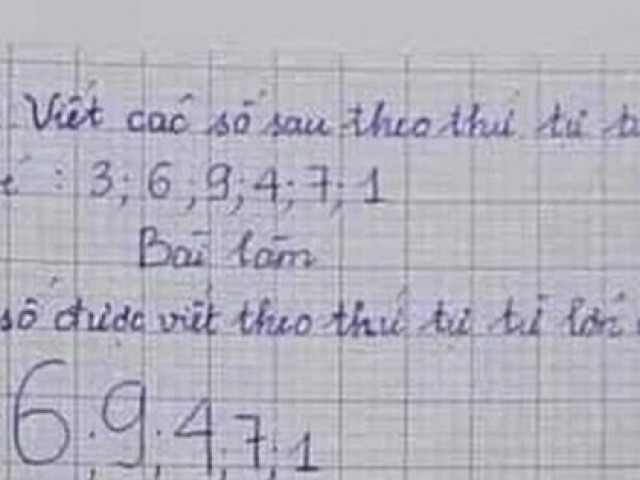 Viết các số sau theo thứ tự
: 3; 6; 9; 4; 7; 1
Bài làm
số được viết theo thứ tự từ lớn
6; 9; 4; 7; 1